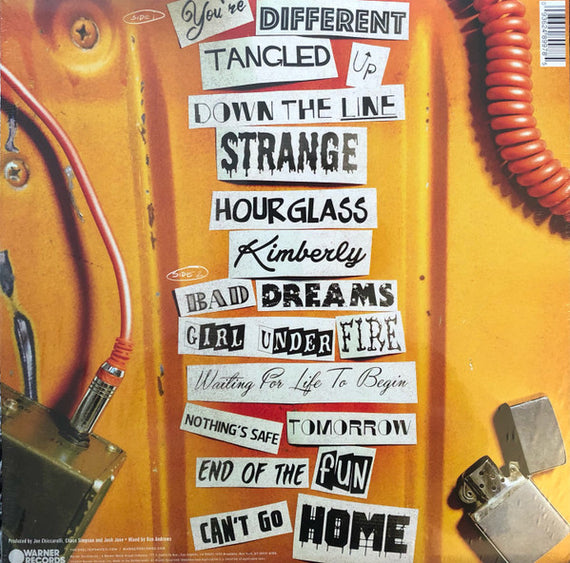 SIDE 1
You're DIFFERENT
TANGLED Up
DOWN THE LINE
STRANGE
HOURGLASS
Kimberly
SIDE 2
BAD DREAMS
GIRL UNDER FIRE
Waiting For Life To Begin
NOTHING'S SAFE TOMORROW
END OF THE FUN
CAN'T GO HOME
Produced by Joe Chiccarelli, Chuck Simpson and Josh Jove • Mixed by Dan Andrews
WARNER RECORDS